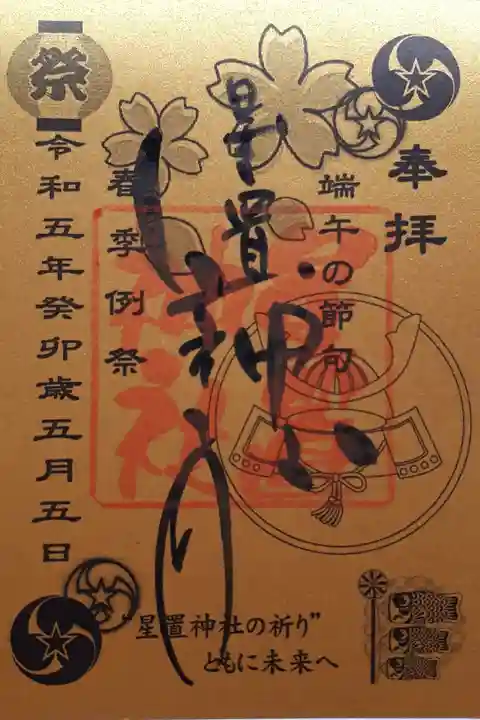 奉拝
端午の節句
星置神社
春季例祭
祭
令和五年癸卯歳五月五日
"星置神社の祈り"
ともに未来へ